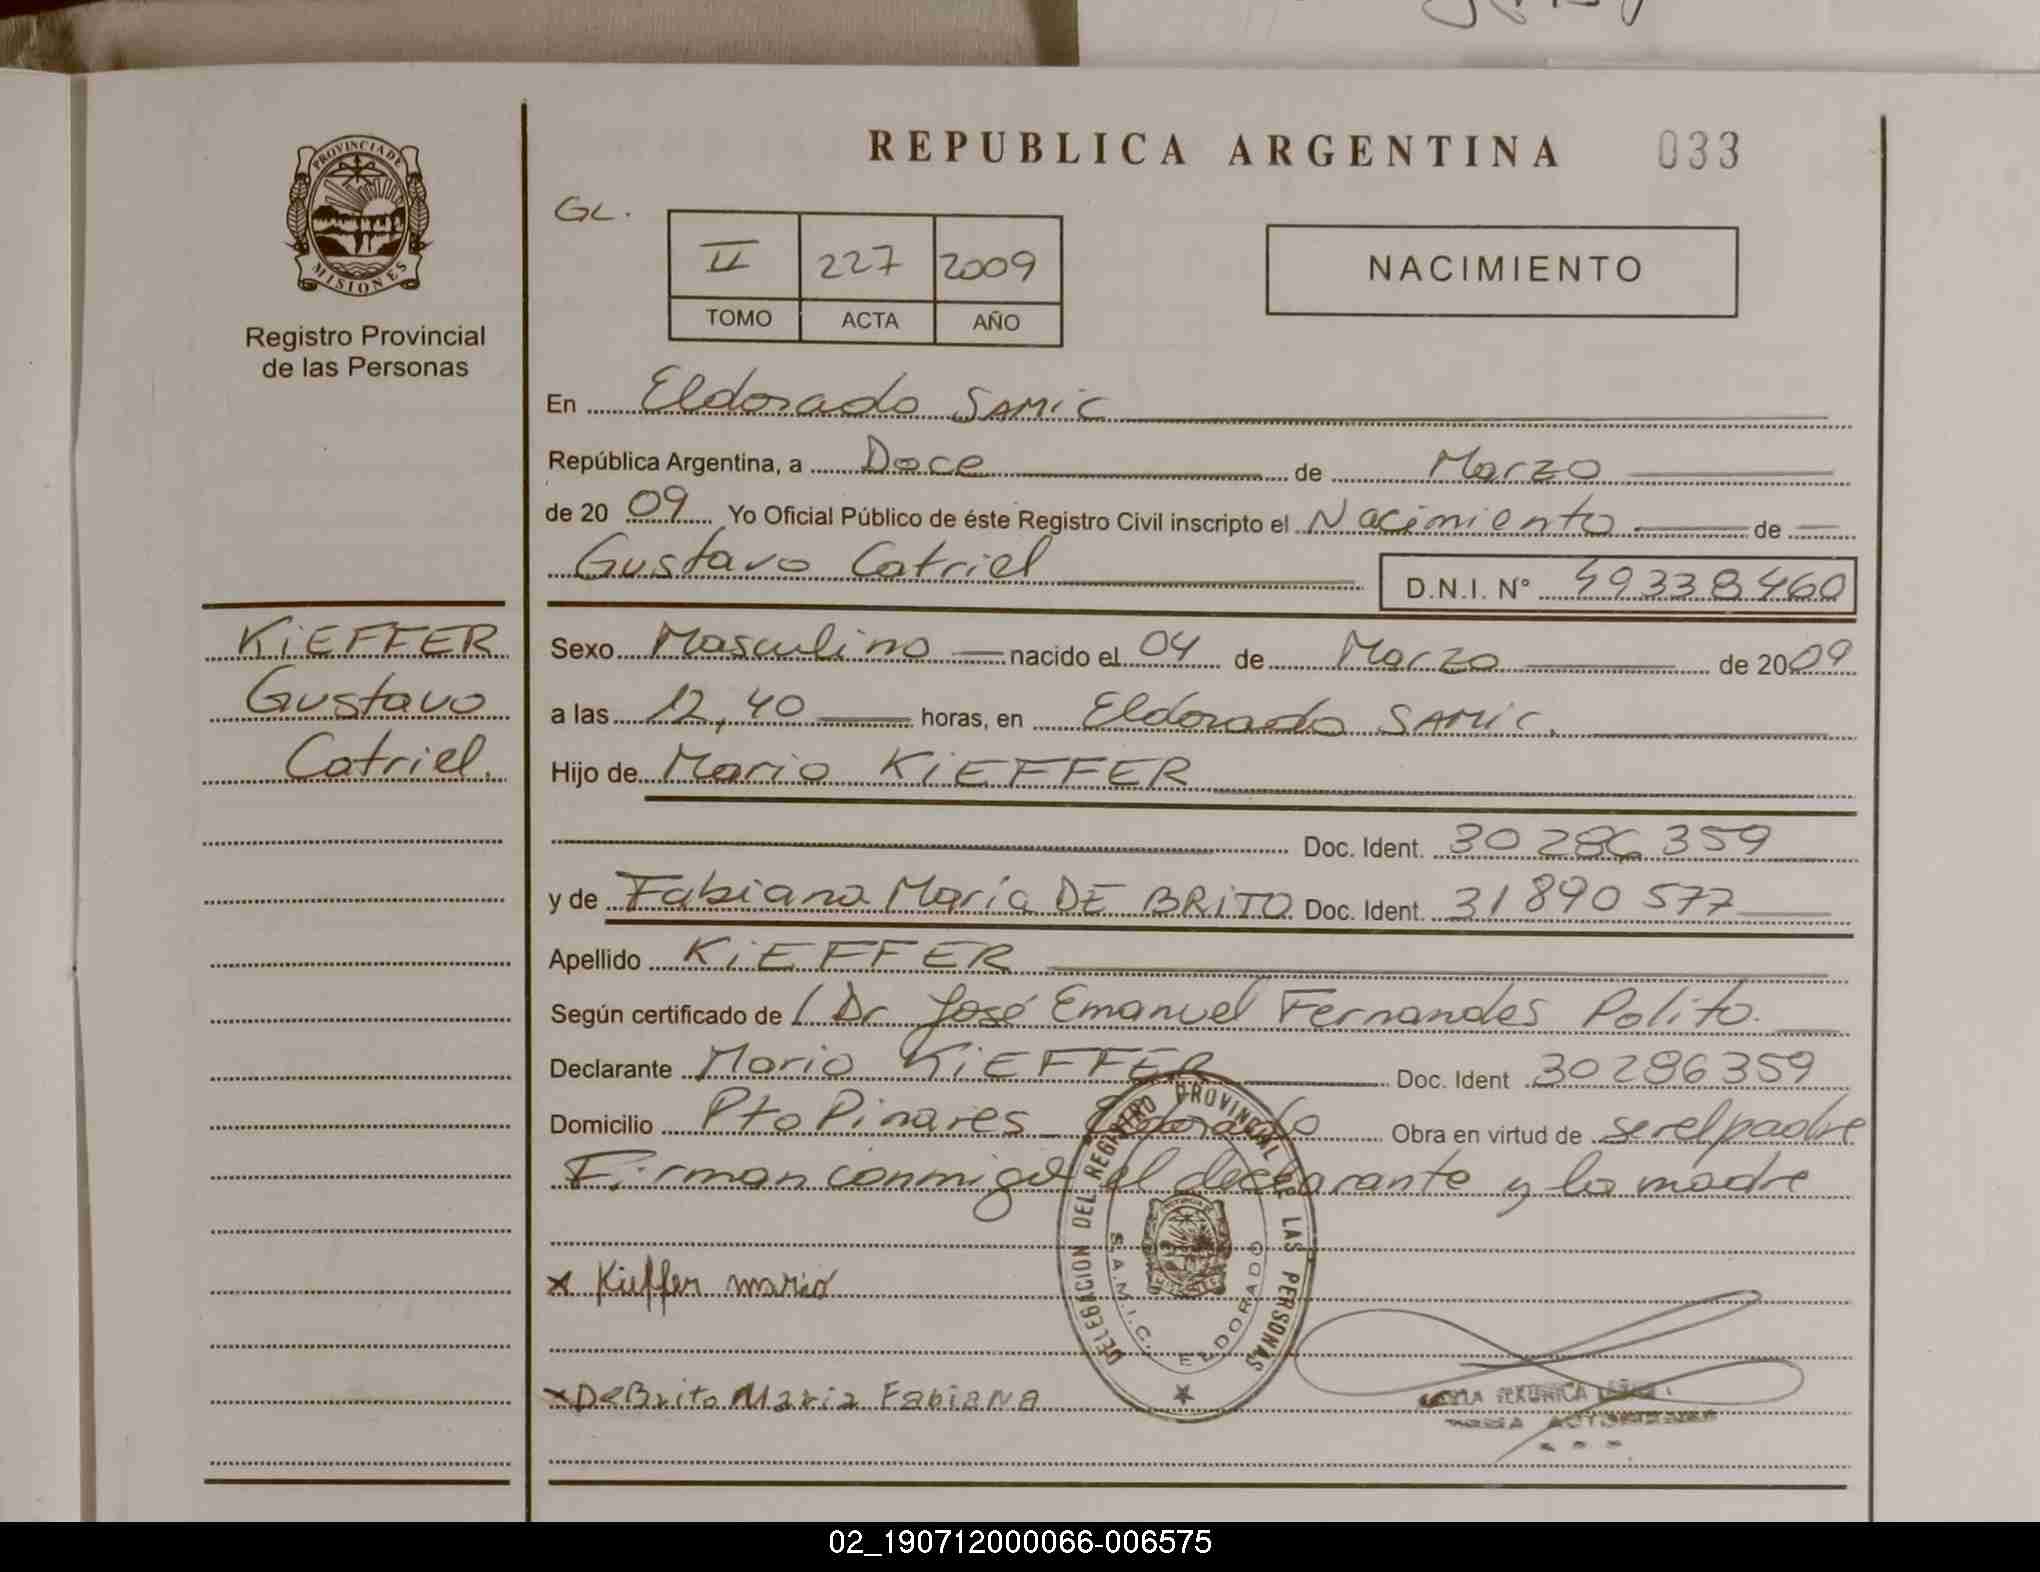 REPUBLICA ARGENTINA 033
PROVINCIA DE
MISIONES
Registro Provincial
de las Personas
GL.
II 227 2009
TOMO ACTA AÑO
NACIMIENTO
En Eldorado SAMIC
República Argentina, a Doce de Marzo
de 2009 Yo Oficial Público de éste Registro Civil inscripto el Nacimiento de
Gustavo Catriel D.N.I. N° 49338460
KiEFFER
Gustavo
Catriel.
Sexo Masculino nacido el 04 de Marzo de 2009
a las 12,40 horas, en Eldorado SAMIC.
Hijo de Mario KiEFFER
Doc. Ident. 30 286 359
y de Fabiana María DE BRiTO Doc. Ident. 31 890 577
Apellido KiEFFER
Según certificado de / Dr José Emanuel Fernandes Polito.
Declarante Mario KiEFFER Doc. Ident 30286359
Domicilio Pto Pinares Eldorado Obra en virtud de ser el padre
Firman conmigo el declarante y la madre
x Kieffer mario
x DeBrito Maria Fabiana
DELEGACION DEL REGISTRO PROVINCIAL DE LAS PERSONAS
S.A.M.I.C. ELDORADO
02_190712000066-006575